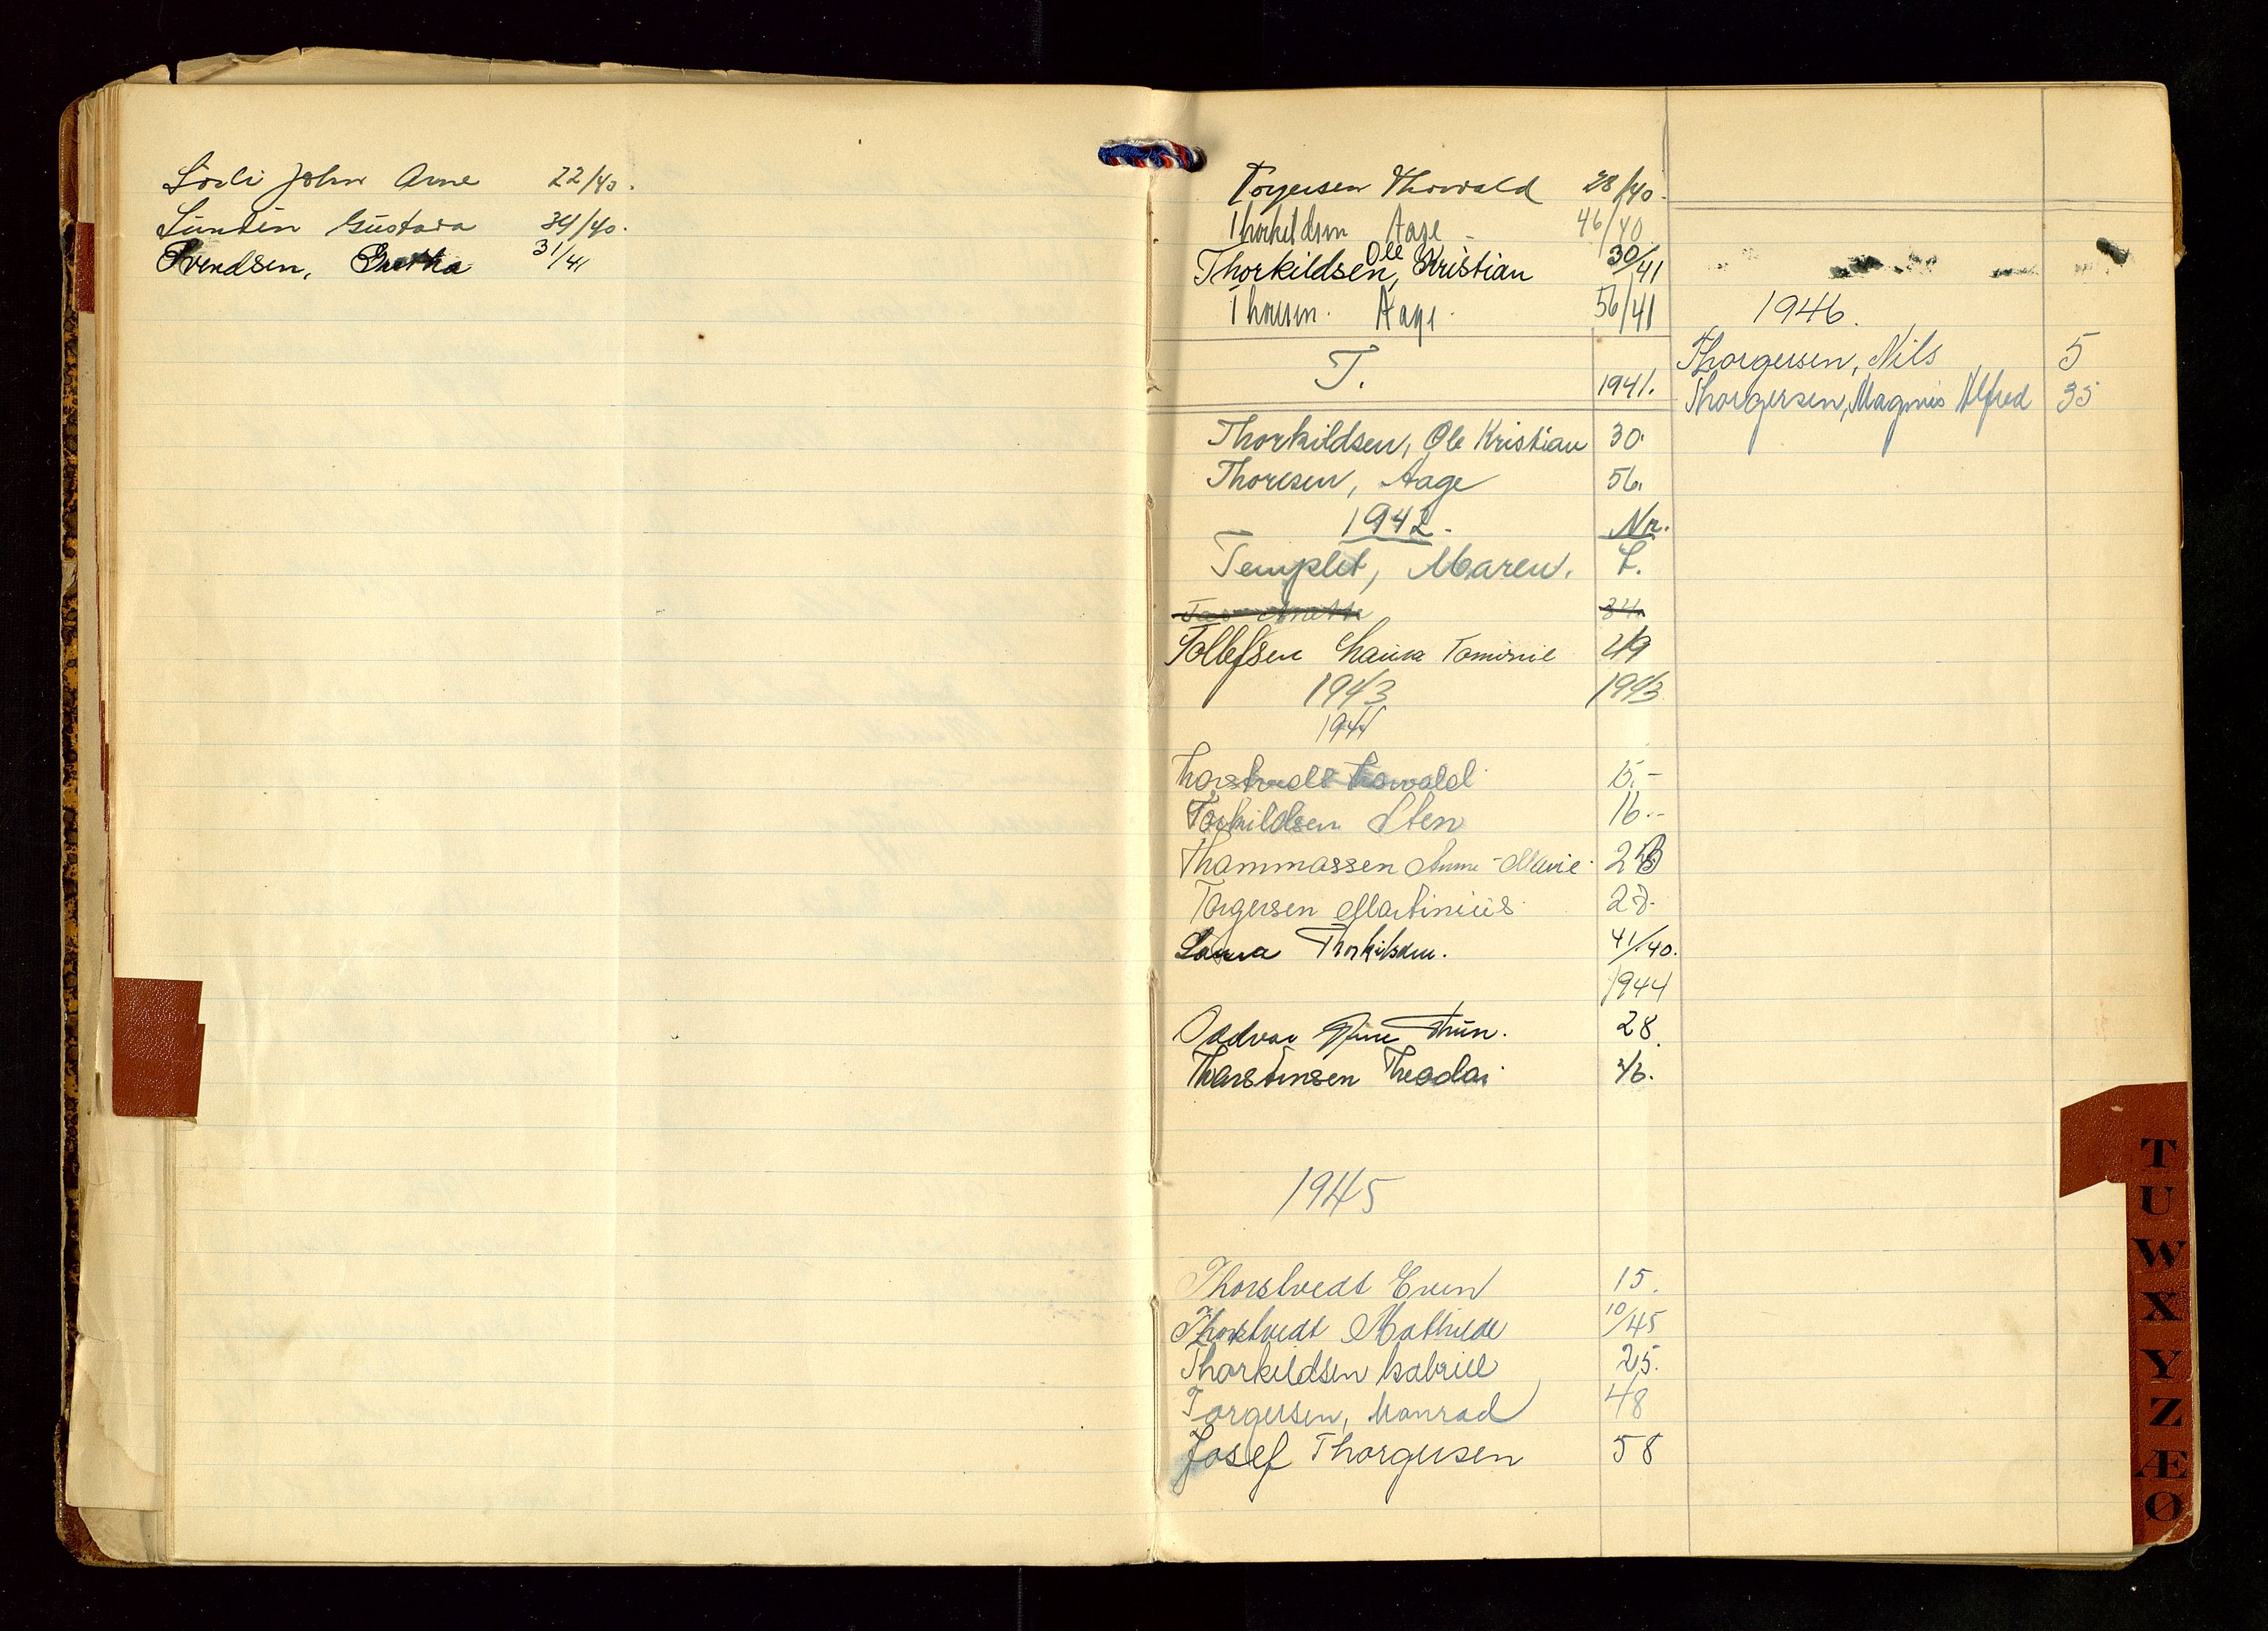 Sörli John Arne 22/40.
Sundin Gustava 34/40.
Svendsen, Gretha 31/41
Torgersen Thorvald 28/40.
Thorkildsen Aage - 46/40
Thorkildsen, Ole Kristian 30/41
Thoresen. Aage. 56/41
T. 1941.
Thorkildsen, Ole Kristian 30.
Thoresen, Aage 56.
1942. Nr.
Templet, Maren. 7.
34.
Tollefsen Laura Tomine 49
1943 1943
1944
Thorstvedt Thorvald 5.-
Torkildsen Sten 16.-
Thommassen Anne-Marie
Torgersen Martinius
Laura Thorkilsen. 41/40.
1944
Oddvar Arne Thun. 28.
Thorstensen Theodor 46.
1945
Thorstvedt Even 15.
Thorstvedt Mathilde 10/45
Thorkildsen Gabriel 25.
Torgersen, Monrad 48
Josef Thorgersen 58
1946.
Thorgersen, Nils 5
Thorgersen, Magnus Alfred 35
T
U
W
X
Y
Z
Æ
Ø